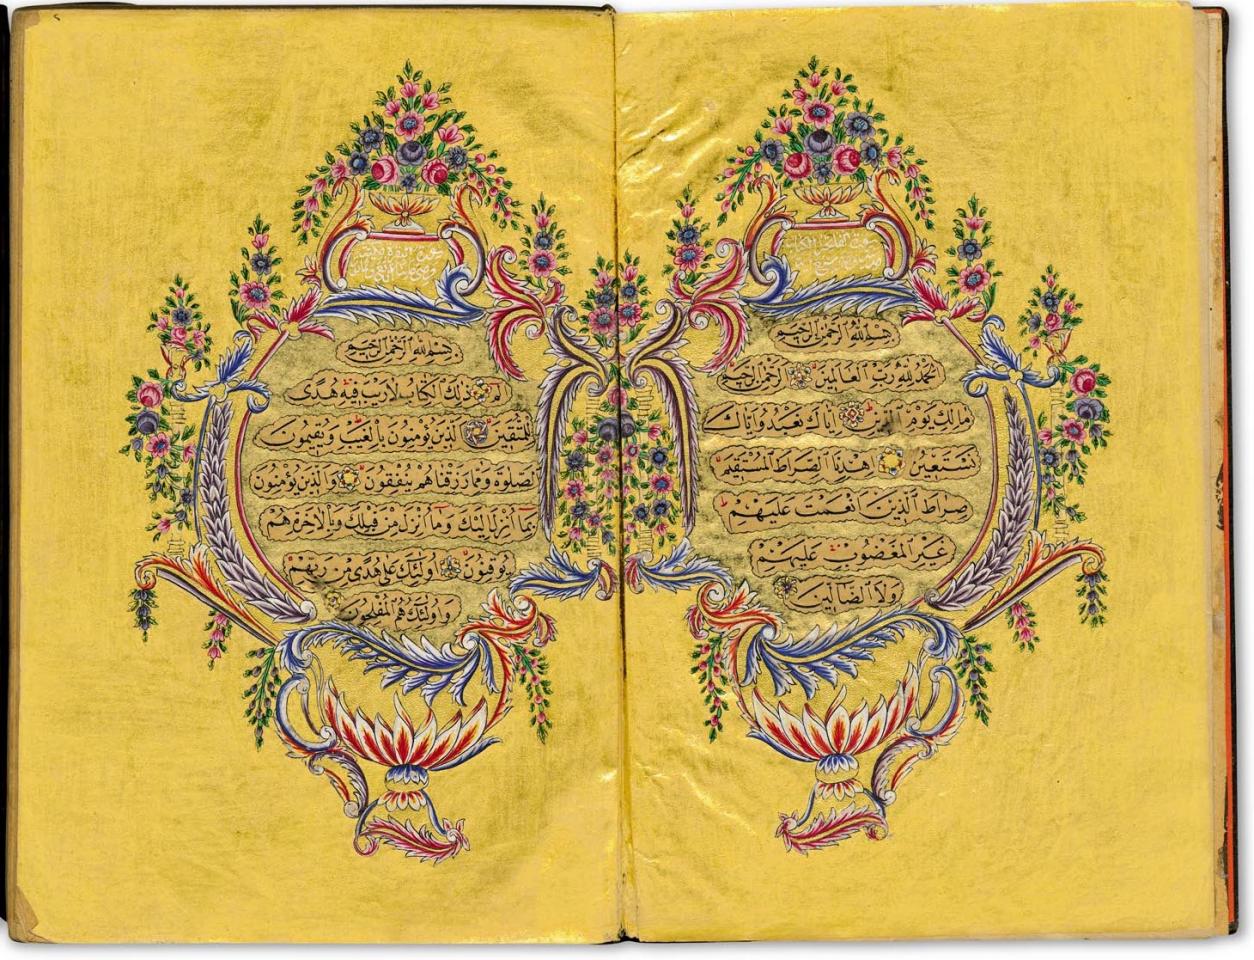 سورة فاتحة الكتاب
بسم الله الرحمن الرحيم
الحمد لله رب العالمين الرحمن الرحيم
مالك يوم الدين اياك نعبد واياك
نستعين اهدنا الصراط المستقيم
صراط الذين انعمت عليهم
غير المغضوب عليهم
ولا الضالين
سورة البقرة
بسم الله الرحمن الرحيم
الم ذلك الكتاب لا ريب فيه هدى
للمتقين الذين يؤمنون بالغيب ويقيمون
الصلوة ومما رزقناهم ينفقون والذين يؤمنون
بما أنزل اليك وما أنزل من قبلك وبالاخرة هم
يوقنون اولئك على هدى من ربهم
واولئك هم المفلحون